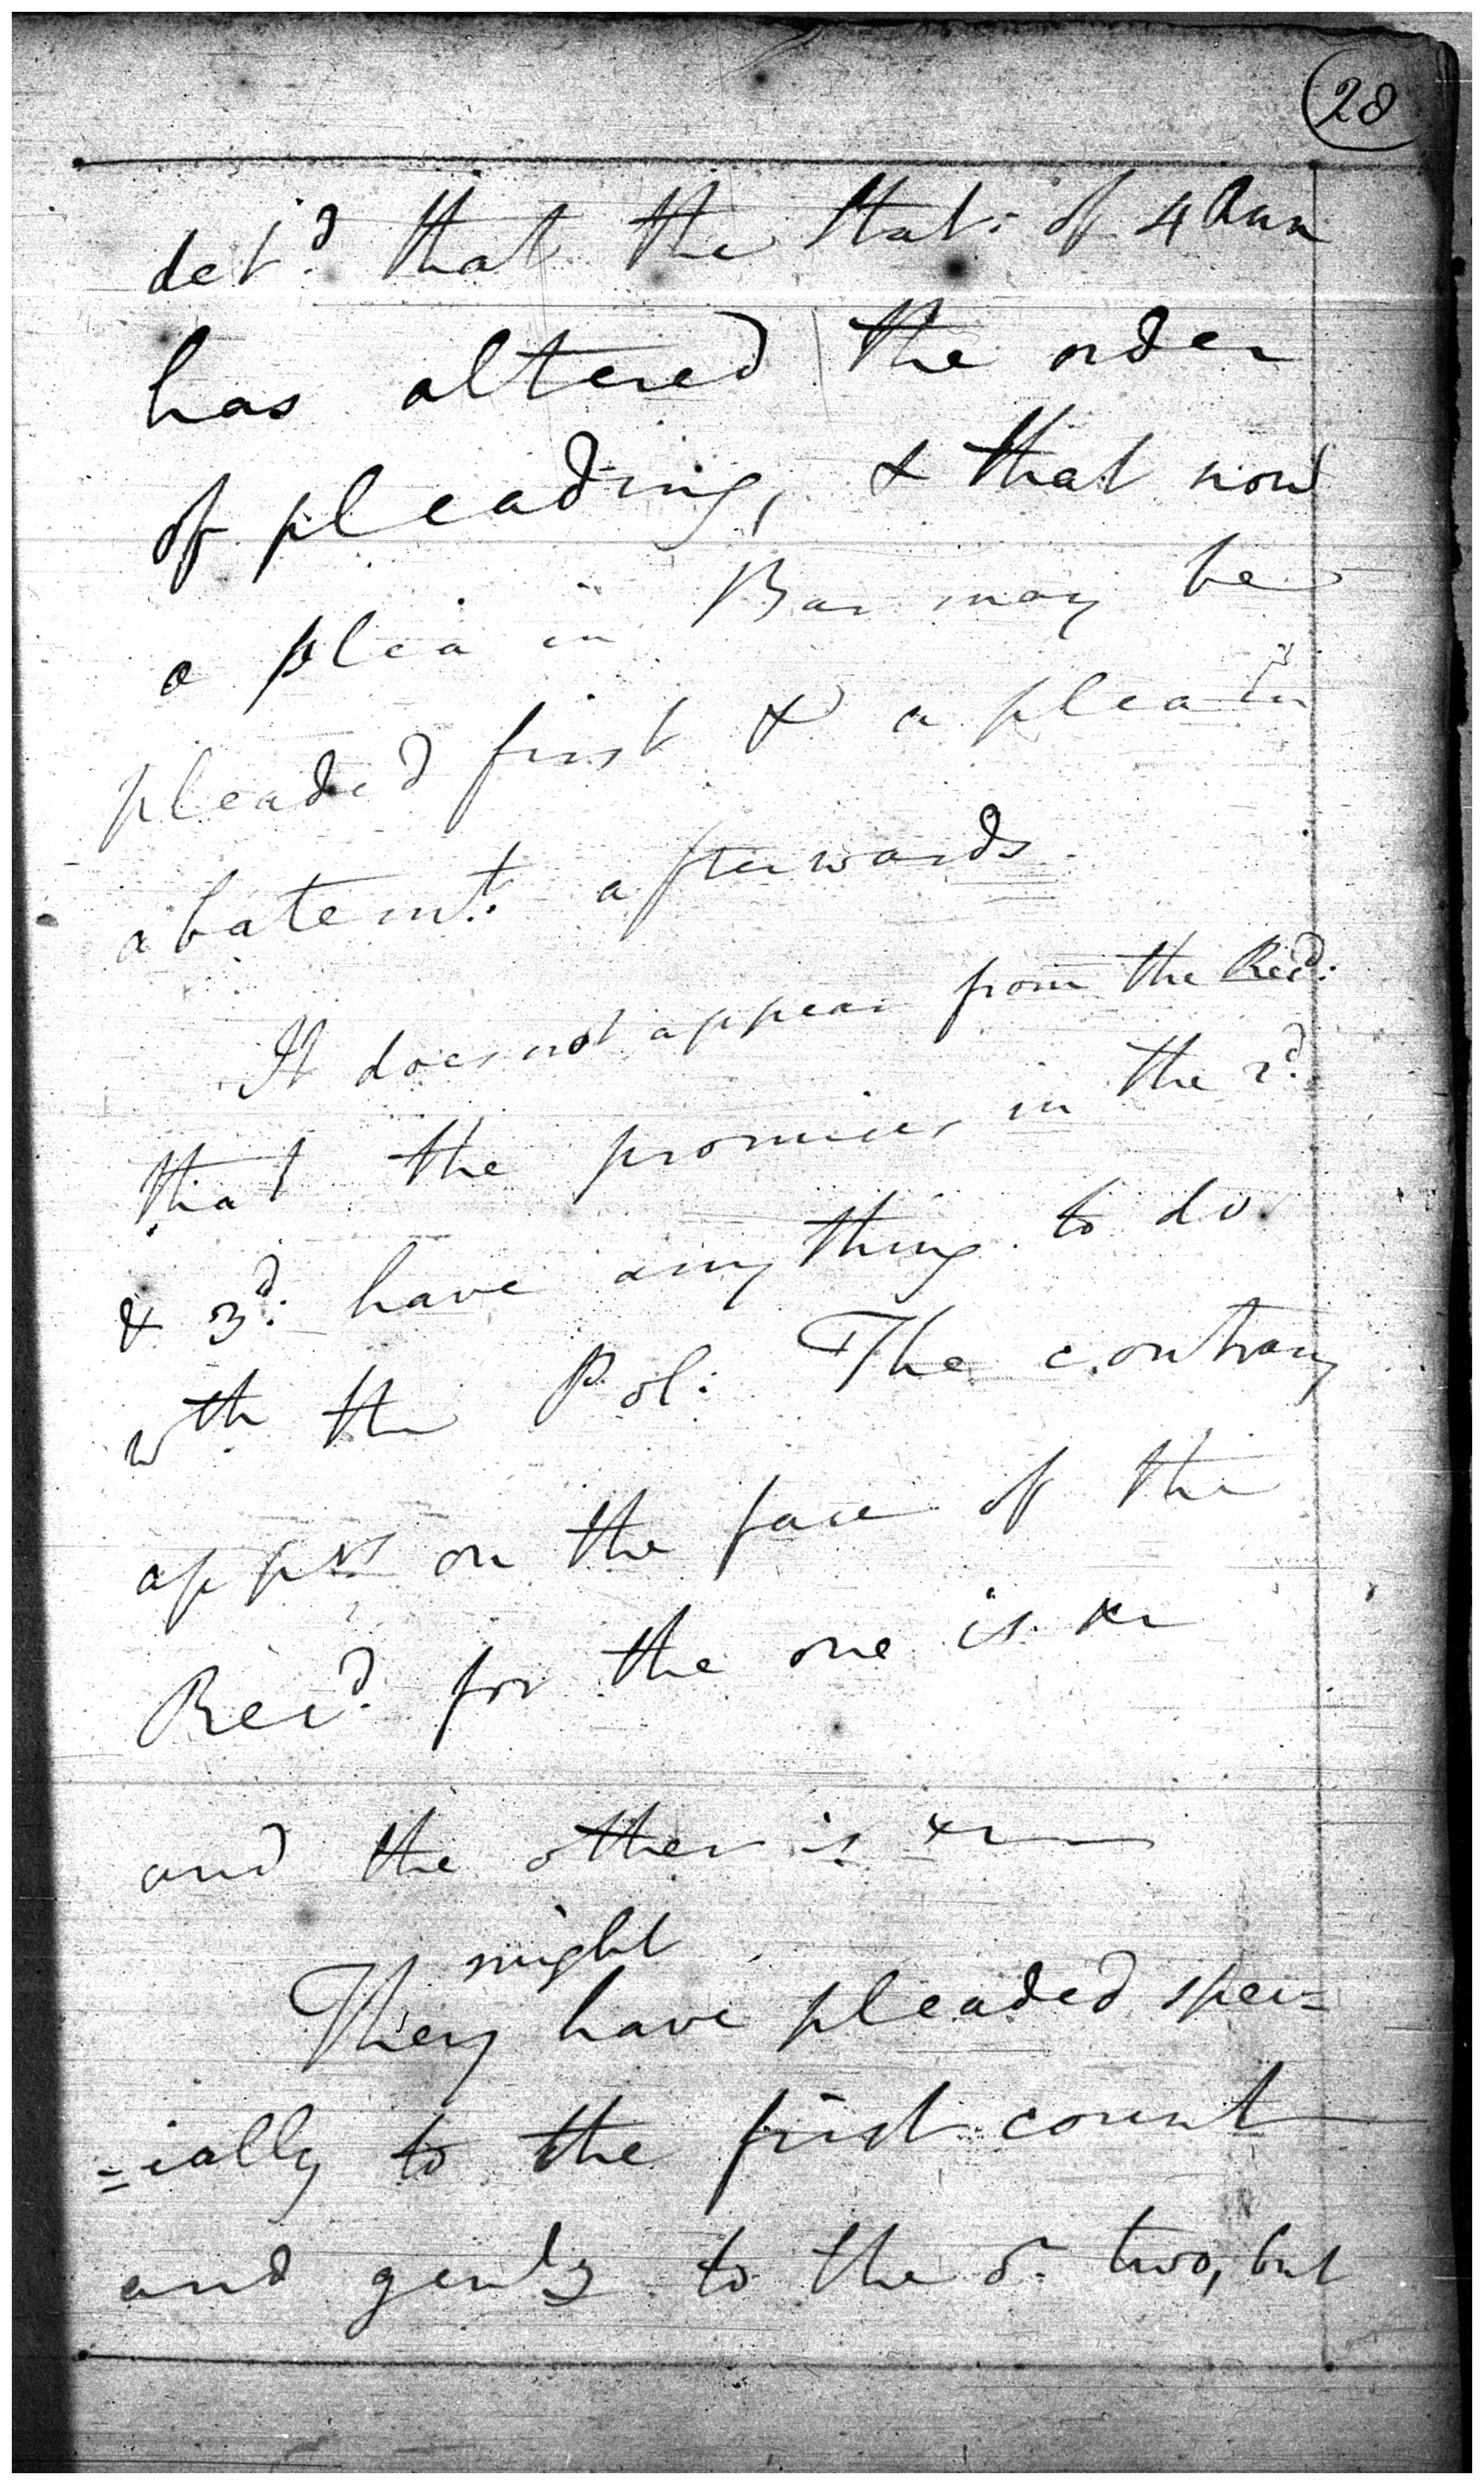 28
det.d that the Stat: of 4 Ann
has altered the order
of pleading, & that now
a plea in Bar may be
pleaded first & a plea in
abatem.t afterwards.
It does not appear from the Rec.d:
that the promises in the 2.d
& 3.d: have any thing to do
wth the Pol: The contrary
app.rs on the face of the
Rec.d for the one is
and the other is
might
They have pleaded spec=
=ially to the first count
and gen.ly to the or two, but